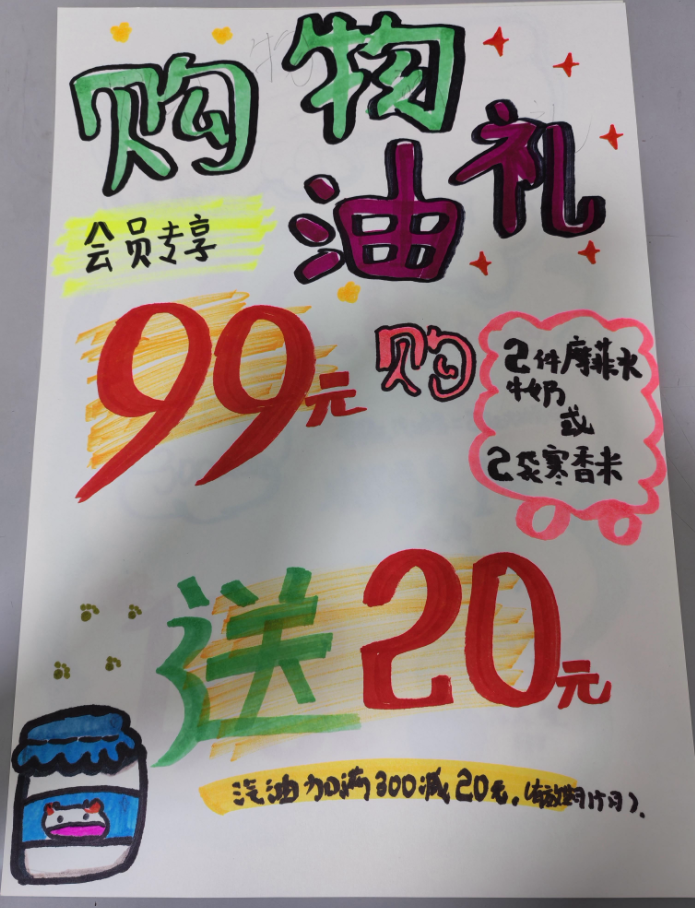 购物
油礼
会员专享
99元购
2件摩菲水
牛奶
或
2袋寒香米
送20元
汽油加满300减20元,(有效期1个月).